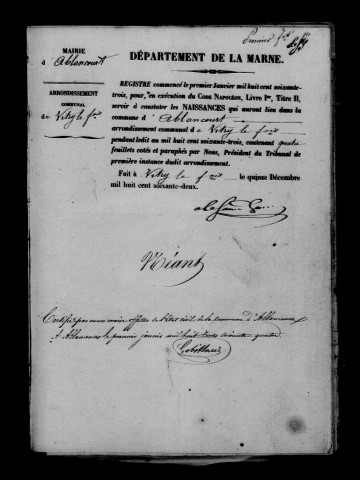 Premier f.et
MAIRIE
d'Ablancourt
DÉPARTEMENT DE LA MARNE.
ARRONDISSEMENT
COMMUNAL
de Vitry le f.ois
REGISTRE commencé le premier Janvier mil huit cent soixante-
trois, pour, en exécution du CODE NAPOLÉON, Livre Ier, Titre II,
servir à constater les NAISSANCES qui auront lieu dans la
commune d'Ablancourt
arrondissement communal de Vitry le f.ois
pendant ledit an mil huit cent soixante-trois, contenant quatre
feuillets cotés et paraphés par Nous, Président du Tribunal de
première instance dudit arrondissement.
Fait à Vitry le f.ois le quinze Décembre
mil huit cent soixante-deux.
Néant
Certifié par nous maire officier de l'état civil de la commune d'Ablancourt
A Ablancourt le premier janvier mil huit cent soixante quatre